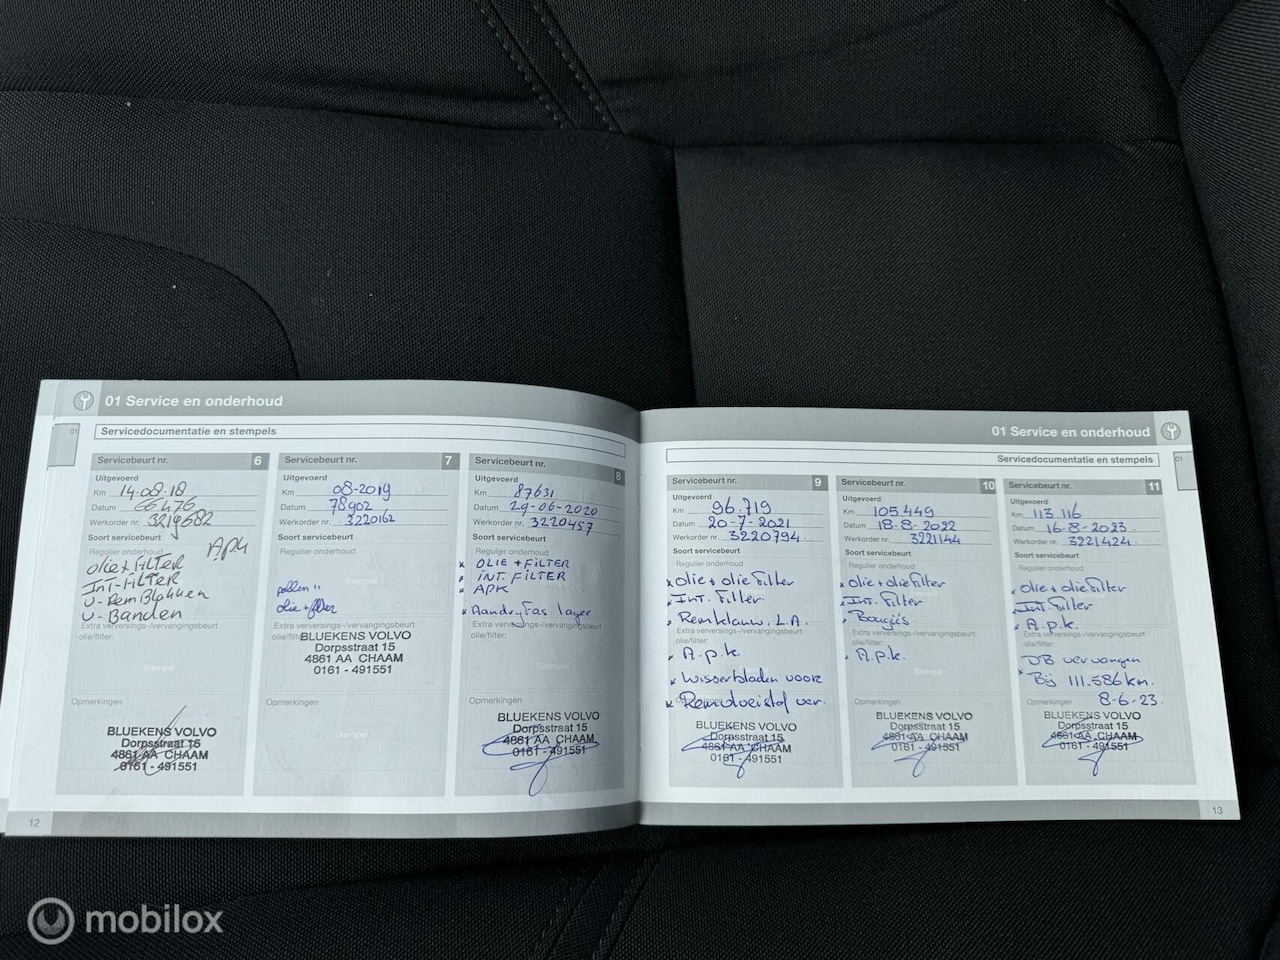 01 Service en onderhoud
01
Servicedocumentatie en stempels
Servicebeurt nr. 6
Uitgevoerd
Km 14-08-18
Datum 66476
Werkorder nr. 3219682
Soort servicebeurt
Regulier onderhoud APK
olie+FilTER
Int-FilTER
V-RemBlokken
V-Banden
Extra verversings-/vervangingsbeurt
olie/filter:
Stempel
Opmerkingen
BLUEKENS VOLVO
Dorpsstraat 15
4861 AA CHAAM
0161 - 491551
Servicebeurt nr. 7
Uitgevoerd
Km 08-2019
Datum 78902
Werkorder nr. 3220162
Soort servicebeurt
Regulier onderhoud
Stempel
pollen "
olie + filter
Extra verversings-/vervangingsbeurt
olie/filter:
BLUEKENS VOLVO
Dorpsstraat 15
4861 AA CHAAM
0161 - 491551
Opmerkingen
Stempel
Servicebeurt nr. 8
Uitgevoerd
Km 87631
Datum 29-06-2020
Werkorder nr. 3220457
Soort servicebeurt
Regulier onderhoud
x OLIE + FILTER
x INT. FILTER
x APK
x Aandrijfas lager
Extra verversings-/vervangingsbeurt
olie/filter:
Stempel
Opmerkingen
BLUEKENS VOLVO
Dorpsstraat 15
4861 AA CHAAM
0161 - 491551
12
01 Service en onderhoud
01
Servicedocumentatie en stempels
Servicebeurt nr. 9
Uitgevoerd
Km 96.719
Datum 20-7-2021
Werkorder nr. 3220794
Soort servicebeurt
Regulier onderhoud
x olie + olie filter
x Int. filter
x Remklauw. L.A.
Extra verversings-/vervangingsbeurt
olie/filter:
x A.p.k.
x Wisserbladen voor
Opmerkingen
x Remvloeistof ver.
BLUEKENS VOLVO
Dorpsstraat 15
4861 AA CHAAM
0161 - 491551
Servicebeurt nr. 10
Uitgevoerd
Km 105.449
Datum 18-8-2022
Werkorder nr. 3221144
Soort servicebeurt
Regulier onderhoud
x olie + olie filter
x Int. filter
x Bougies
Extra verversings-/vervangingsbeurt
olie/filter:
x A.p.k.
Stempel
Opmerkingen
BLUEKENS VOLVO
Dorpsstraat 15
4861 AA CHAAM
0161 - 491551
Servicebeurt nr. 11
Uitgevoerd
Km 113.116
Datum 16-8-2023
Werkorder nr. 3221424
Soort servicebeurt
Regulier onderhoud
x olie + olie filter
x Int. filter
x A.p.k.
Extra verversings-/vervangingsbeurt
olie/filter:
x DB vervangen
Bij 111.586 km.
Opmerkingen 8-6-23
BLUEKENS VOLVO
Dorpsstraat 15
4861 AA CHAAM
0161 - 491551
13
mobilox